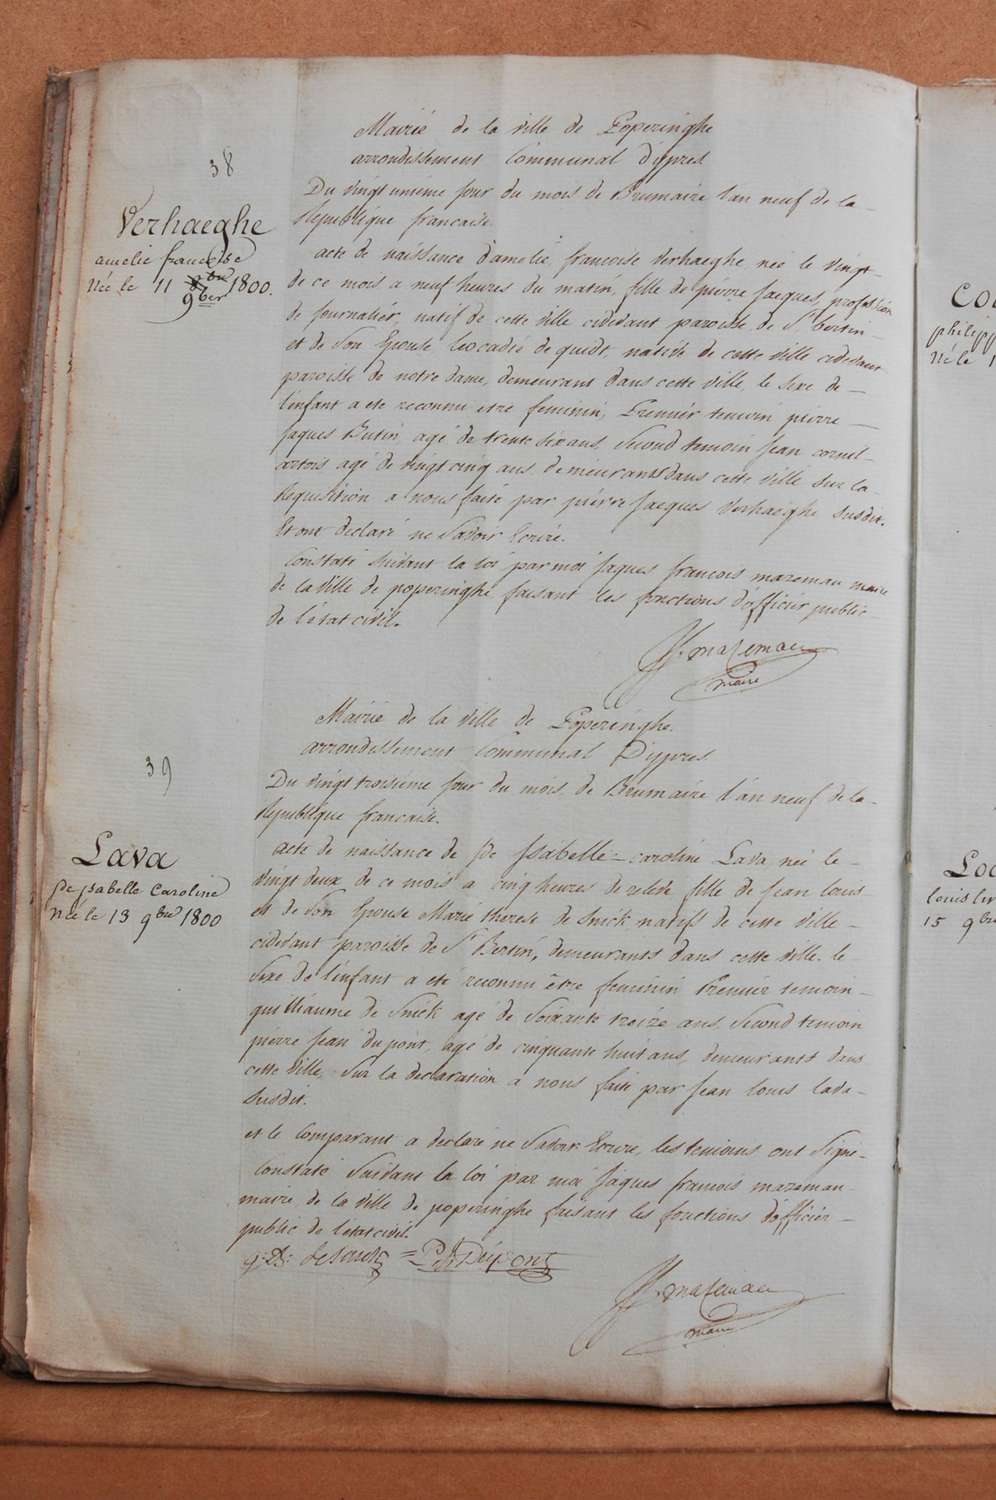 38
Verhaeghe
amelie francoise
Née le 11 9ber 1800.
Mairie de la ville de Poperinghe
arrondissement Communal d'ypres
Du vingt unieme jour du mois de Brumaire l'an neuf de la
Republique francaise.
acte de naissance d'amelie, francoise Verhaeghe, née le vingt
de ce mois a neuf heures du matin, fille de pierre Jacques, profession
de journalier, natif de cette ville cidevant paroisse de St. bertin
et de son Epouse Leocadie de quidt, native de cette ville cidevant
paroisse de notre dame, demeurant dans cette ville, le sexe de
l'enfant a eté reconnu etre feminin, Premier temoin pierre
Jaques Butin, agé de trente six ans, Second temoin Jean cornil
artois agé de vingt cinq ans, demeurants dans cette ville sur la
requisition a nous faite par pierre Jacques Verhaeghe susdit.
Et ont declaré ne Savoir Ecrire.
Constaté suivant la loi par moi Jaques francois mazeman maire
de la ville de poperinghe faisant les fonctions d'officier public
de l'état civil.
J. f. mazeman
maire
39
Lava
pe ysabelle Caroline
née le 13 9bre 1800
Mairie de la ville de Poperinghe.
arrondissement Communal D'ypres
Du vingt troisieme jour du mois de Brumaire l'an neuf de la
Republique francaise.
acte de naissance de pe Ysabelle = caroline Lava née le
vingt deux de ce mois a cinq heures de relevé fille de Jean louis
et de son Epouse Marie therese de Snick natifs de cette ville
cidevant paroisse de St Bertin, demeurants dans cette ville. le
Sexe de l'enfant a eté reconnu être feminin Premier temoin
guilliaume de Snick agé de soixante treize ans, Second temoin
pierre Jean du pont, agé de cinquante huit ans, demeurants dans
cette ville, Sur la declaration a nous faite par Jean louis lava
susdit.
et le Comparant a declaré ne Savoir Ecrire, les temoins ont Signé
Constaté Suivant la loi par moi Jaques francois mazeman
maire de la ville de poperinghe faisant les fonctions d'officier
public de l'etat civil.
P: J: Dupont
J. f. mazeman
maire
philipp
Né le 1
louis
15 9bre